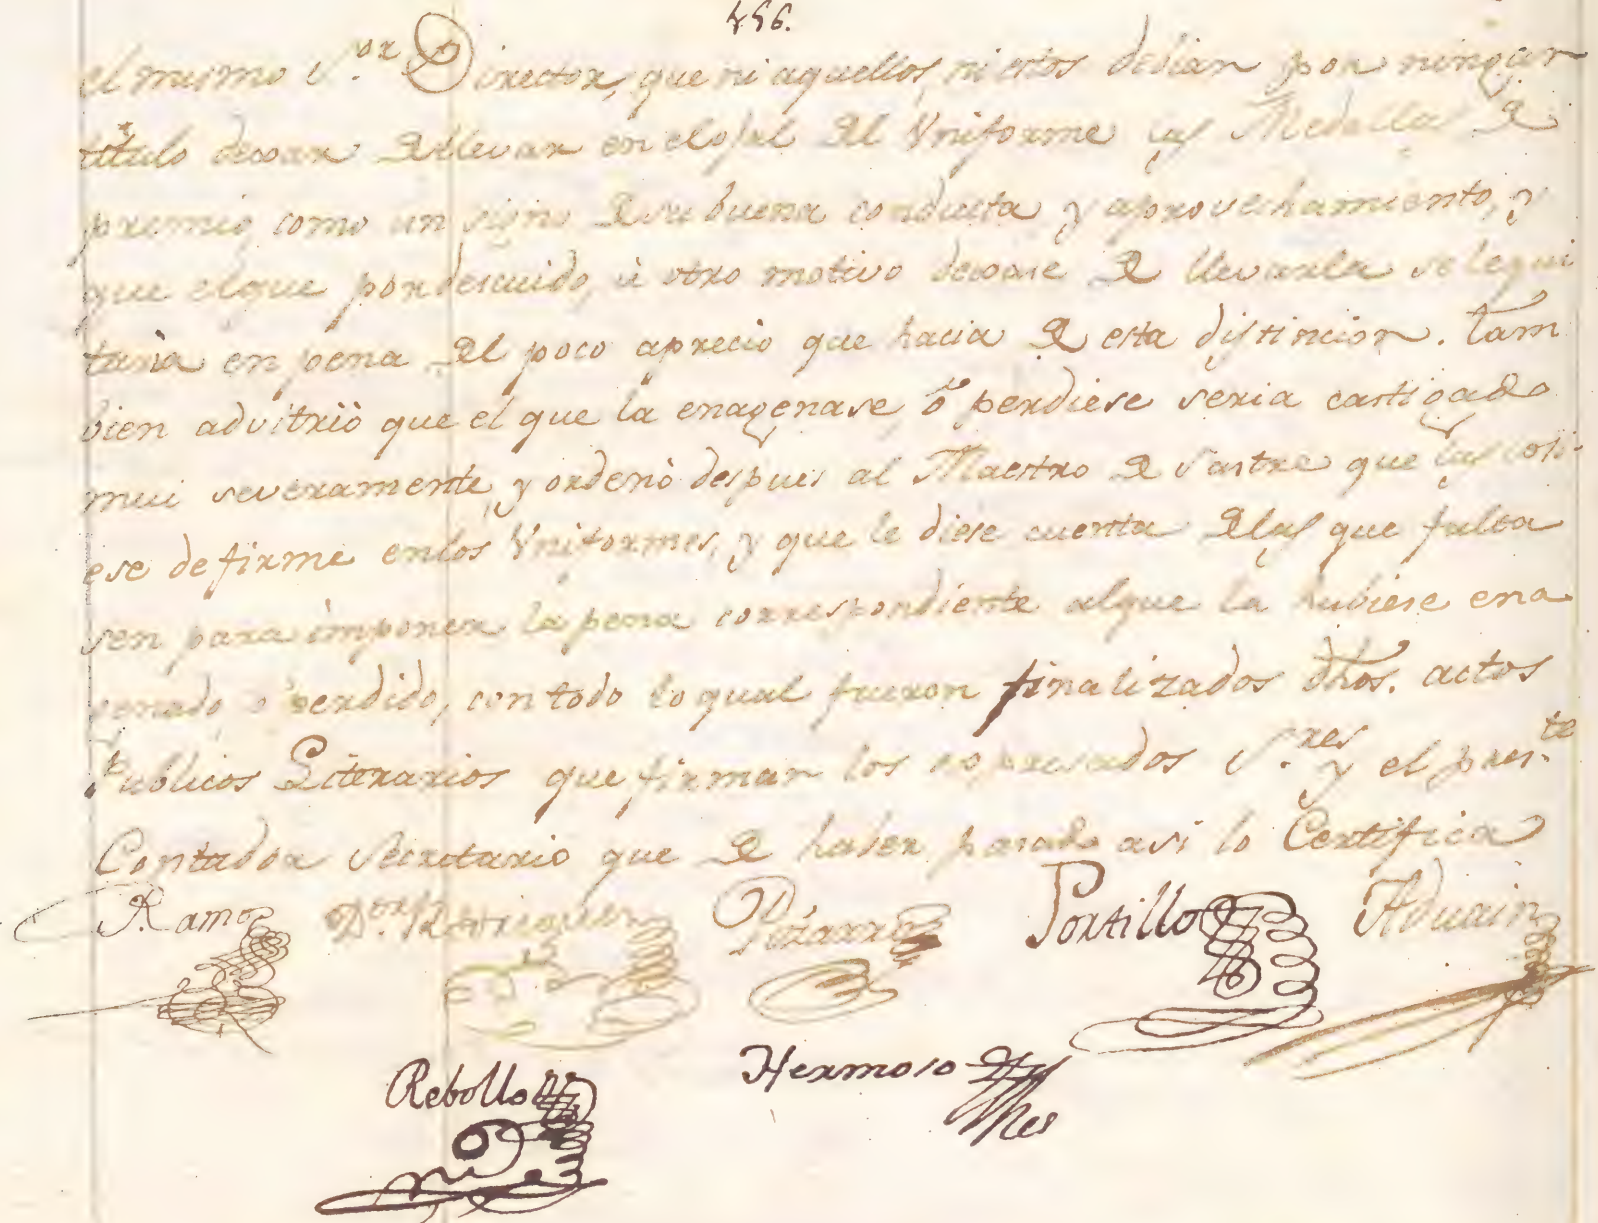 456.
el mismo S.or Director, que ni aquellos, ni estos debian por ningun
titulo dexar de llevar en el ojal del Vniforme las Medallas de
premio, como un signo de su buena conducta y aprovechamiento, y
que el que por descuido, ù otro motivo dexase de llevarla se le qui
taria en pena del poco aprecio que hacia de esta distincion. Tam
bien advitriò que el que la enagenase, ò perdiese seria castigado
mui severamente, y ordenò despues al Maestro de Sastre que las cosi-
ese de firme en los Vniformes, y que le diese cuenta de las que falta
sen para imponer la pena correspondiente al que la hubiese ena
genado, o perdido, con todo lo qual fueron finalizados dhos. actos
Publicos Literarios que firman los expresados S.res y el pres.te
Contador Secretario que de haber pasado asi lo Certifica
Ramos D.or Rodriguez Pizarro Portillo Aduain
Rebollo Hermoso